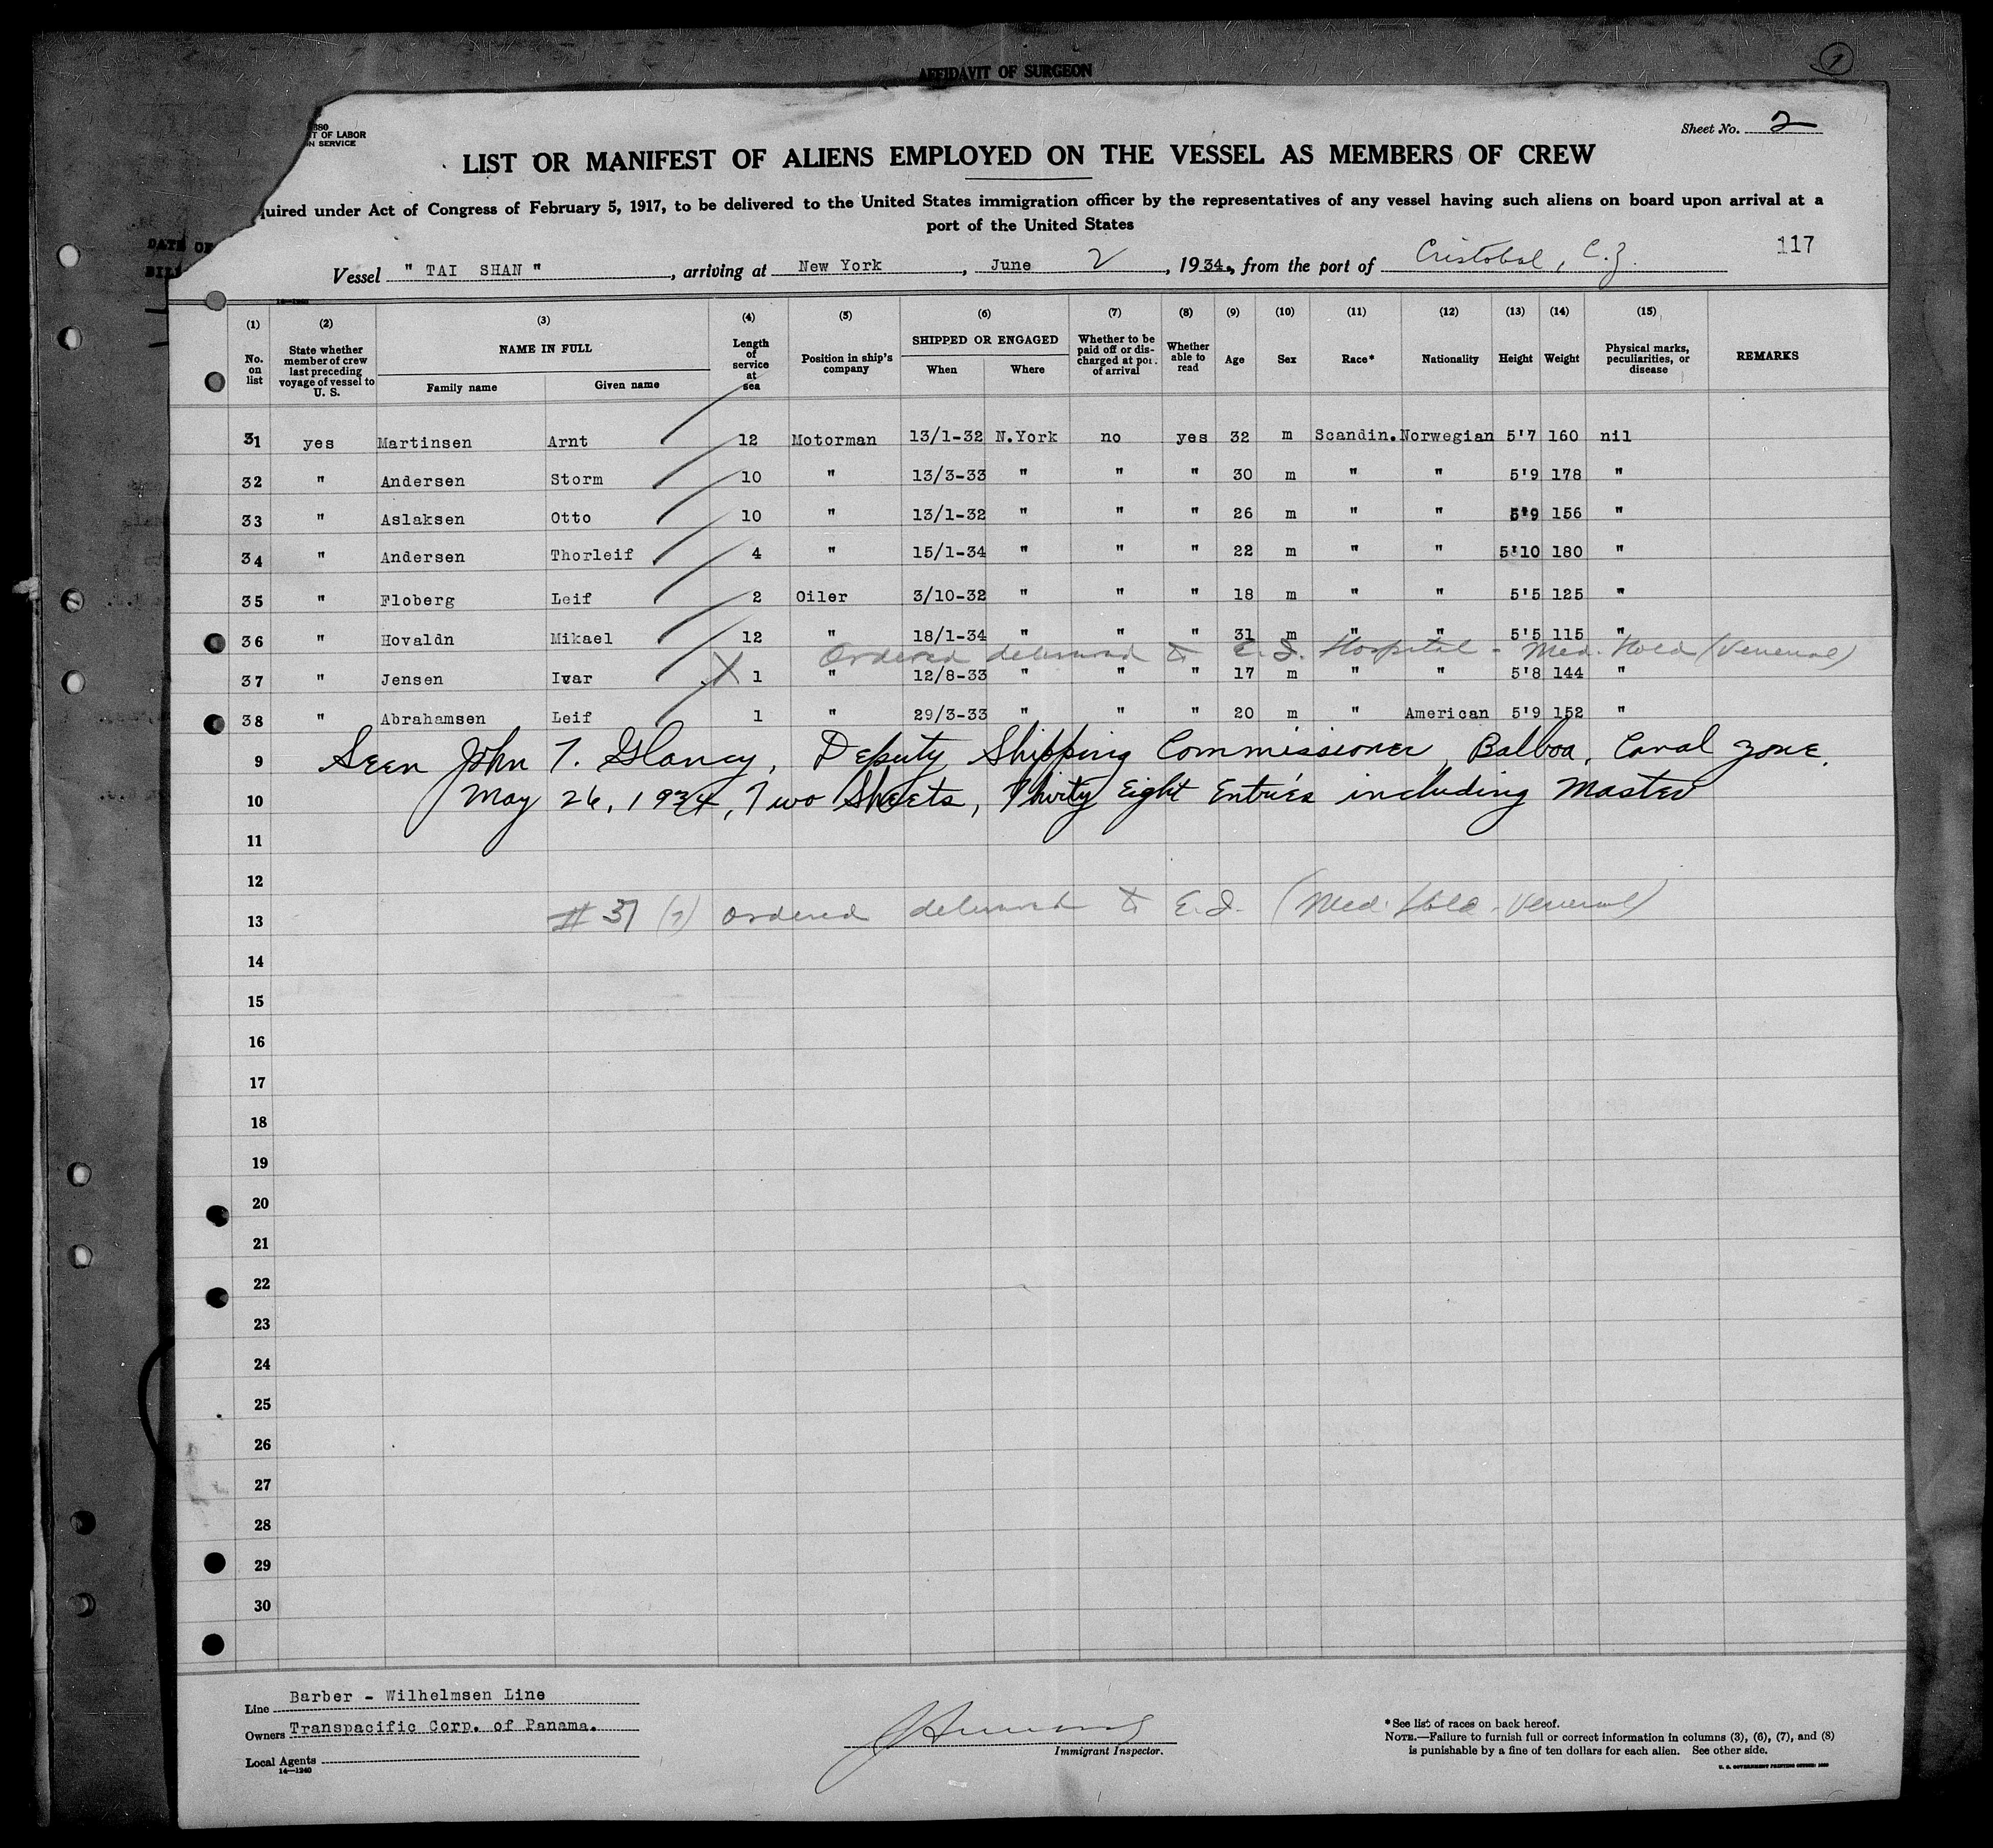 AFFIDAVIT OF SURGEON
1
680
T OF LABOR
N SERVICE
Sheet No. 2
LIST OR MANIFEST OF ALIENS EMPLOYED ON THE VESSEL AS MEMBERS OF CREW
quired under Act of Congress of February 5, 1917, to be delivered to the United States immigration officer by the representatives of any vessel having such aliens on board upon arrival at a
port of the United States
DATE OF
117
Vessel " TAI SHAN ", arriving at New York, June 2, 1934, from the port of Cristobal, C.Z.
(1) (2) (3) (4) (5) (6) (7) (8) (9) (10) (11) (12) (13) (14) (15)
No. on list State whether member of crew last preceding voyage of vessel to U. S. NAME IN FULL Family name Given name Length of service at sea Position in ship's company SHIPPED OR ENGAGED When Where Whether to be paid off or discharged at port of arrival Whether able to read Age Sex Race* Nationality Height Weight Physical marks, peculiarities, or disease REMARKS
31 yes Martinsen Arnt 12 Motorman 13/1-32 N.York no yes 32 m Scandin. Norwegian 5'7 160 nil
32 " Andersen Storm 10 " 13/3-33 " " " 30 m " " 5'9 178 "
33 " Aslaksen Otto 10 " 13/1-32 " " " 26 m " " 5'9 156 "
34 " Andersen Thorleif 4 " 15/1-34 " " " 22 m " " 5'10 180 "
35 " Floberg Leif 2 Oiler 3/10-32 " " " 18 m " " 5'5 125 "
36 " Hovaldn Mikael 12 " 18/1-34 " " " 31 m " " 5'5 115 "
Ordered delivered to E.I. Hospital - Med. Hold (Venereal)
37 " Jensen Ivar X 1 " 12/8-33 " " " 17 m " " 5'8 144 "
38 " Abrahamsen Leif 1 " 29/3-33 " " " 20 m " American 5'9 152 "
9 Seen John T. Glancy, Deputy Shipping Commissioner, Balboa, Canal Zone.
10 May 26, 1934, Two Sheets, Thirty Eight Entries including Master
11
12
13 #37 (?) ordered delivered to E.I. (Med. Hold - Venereal)
14
15
16
17
18
19
20
21
22
23
24
25
26
27
28
29
30
Line Barber - Wilhelmsen Line
Owners Transpacific Corp. of Panama.
Local Agents
14—1240
Immigrant Inspector.
* See list of races on back hereof.
NOTE.—Failure to furnish full or correct information in columns (3), (6), (7), and (8)
is punishable by a fine of ten dollars for each alien. See other side.